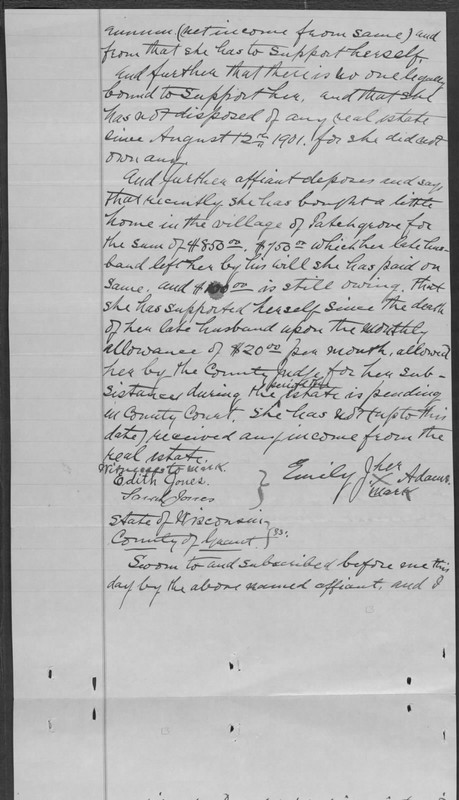 annum (net income from same) and
from that she has to support herself.
And further that there is no one legally
bound to support her, and that she
has not disposed of any real estate
since August 12th 1901. for she did not
own any.
And further affiant deposes and says
that recently she has bought a little
home in the village of Patchgrove for
the sum of $850.00. $750.00 which her late hus-
band left her by his will she has paid on
same, and $100.00 is still owing. That
she has supported herself since the death
of her late husband upon the monthly
allowance of $20.00 per month, allowed
her by the County Judge, for her sub-
sistance during the estate is pending
in County Court. She has not (up to this
date) received any income from the
real estate.
Witnesses to mark.
Edith Jones.
Jones
Emily J. her X mark Adams.
State of Wisconsin
County of Grant } ss.
Sworn to and subscribed before me this
day by the above named affiant, and I